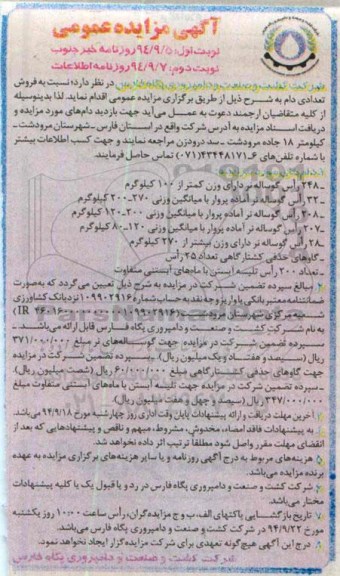 آگهی مزایده عمومی
نوبت اول: ۹۴/۹/۵ روزنامه خبر جنوب
نوبت دوم: ۹۴/۹/۷ روزنامه اطلاعات
شرکت کشت و صنعت و دامپروری پگاه فارس در نظر دارد؛ نسبت به فروش
تعدادی دام به شرح ذیل از طریق برگزاری مزایده عمومی اقدام نماید. لذا بدینوسیله
از کلیه متقاضیان ارجمند دعوت به عمل می‌آید جهت بازدید دام‌های مورد مزایده و
دریافت اسناد مزایده به آدرس شرکت واقع در استان فارس ـ شهرستان مرودشت ـ
کیلومتر ۱۸ جاده مرودشت ـ سد درودزن مراجعه نمایند و جهت کسب اطلاعات بیشتر
با شماره تلفن‌های ۶ـ۴۳۴۴۸۱۷۱ (۰۷۱) تماس حاصل فرمایند.
ـ ۲۴۸ رأس گوساله نر دارای وزن کمتر از ۱۰۰ کیلوگرم
ـ ۳۲ رأس گوساله نر آماده پروار با میانگین وزنی ۲۷۰ـ۲۰۰ کیلوگرم
ـ ۳۰۸ رأس گوساله نر آماده پروار با میانگین وزنی ۲۰۰ـ۱۲۰ کیلوگرم
ـ ۲۰۷ رأس گوساله نر آماده پروار با میانگین وزنی ۱۲۰ـ۸۰ کیلوگرم
ـ ۲۸ رأس گوساله نر دارای وزن بیشتر از ۲۷۰ کیلوگرم
ـ گاوهای حذفی کشتارگاهی تعداد ۲۵ رأس
ـ تعداد ۲۰۰ رأس تلیسه آبستن با ماه‌های آبستنی متفاوت
۲ـ مبالغ سپرده تضمین شرکت در مزایده به شرح ذیل تعیین می‌گردد که به‌صورت
ضمانتنامه معتبر بانکی یا واریز وجه نقد به حساب شماره ۱۰۹۹۰۲۹۱۶ نزد بانک کشاورزی
شعبه مرکزی شهرستان مرودشت
به نام شرکت کشت و صنعت و دامپروری پگاه فارس قابل ارائه می‌باشد.
ـ سپرده تضمین شرکت در مزایده جهت گوساله‌های نر مبلغ ۳۷۱/۰۰۰/۰۰۰
ریال (سیصد و هفتاد و یک میلیون ریال). ـ سپرده تضمین شرکت در مزایده
جهت گاوهای حذفی کشتارگاهی مبلغ ۶۰/۰۰۰/۰۰۰ ریال (شصت میلیون ریال).
ـ سپرده تضمین شرکت در مزایده جهت تلیسه آبستن با ماه‌های آبستنی متفاوت مبلغ
۳۴۷/۰۰۰/۰۰۰ ریال (سیصد و چهل و هفت میلیون ریال).
۳ـ آخرین مهلت دریافت و ارائه پیشنهادات پایان وقت اداری روز چهارشنبه مورخ ۹۴/۹/۱۸ می‌باشد.
۴ـ به پیشنهادات فاقد امضاء، مخدوش، مشروط، مبهم و ناقص و پیشنهادهایی که بعد از
انقضای مهلت مقرر واصل شود مطلقاً ترتیب اثر داده نخواهد شد.
۵ـ هزینه‌های مربوط به درج آگهی روزنامه و یا سایر هزینه‌های برگزاری مزایده به عهده
برنده مزایده می‌باشد.
۶ـ شرکت کشت و صنعت و دامپروری پگاه فارس در رد و یا قبول یک یا کلیه پیشنهادات
مختار می‌باشد.
۷ـ تاریخ بازگشایی پاکتهای الف، ب و ج مزایده‌گران، رأس ساعت ۱۰:۰۰ روز یکشنبه
مورخ ۹۴/۹/۲۲ در شرکت کشت و صنعت و دامپروری پگاه فارس می‌باشد.
۸ـ درج این آگهی هیچ‌گونه تعهدی برای شرکت مزایده‌گزار ایجاد نخواهد نمود.
شرکت کشت و صنعت و دامپروری پگاه فارس